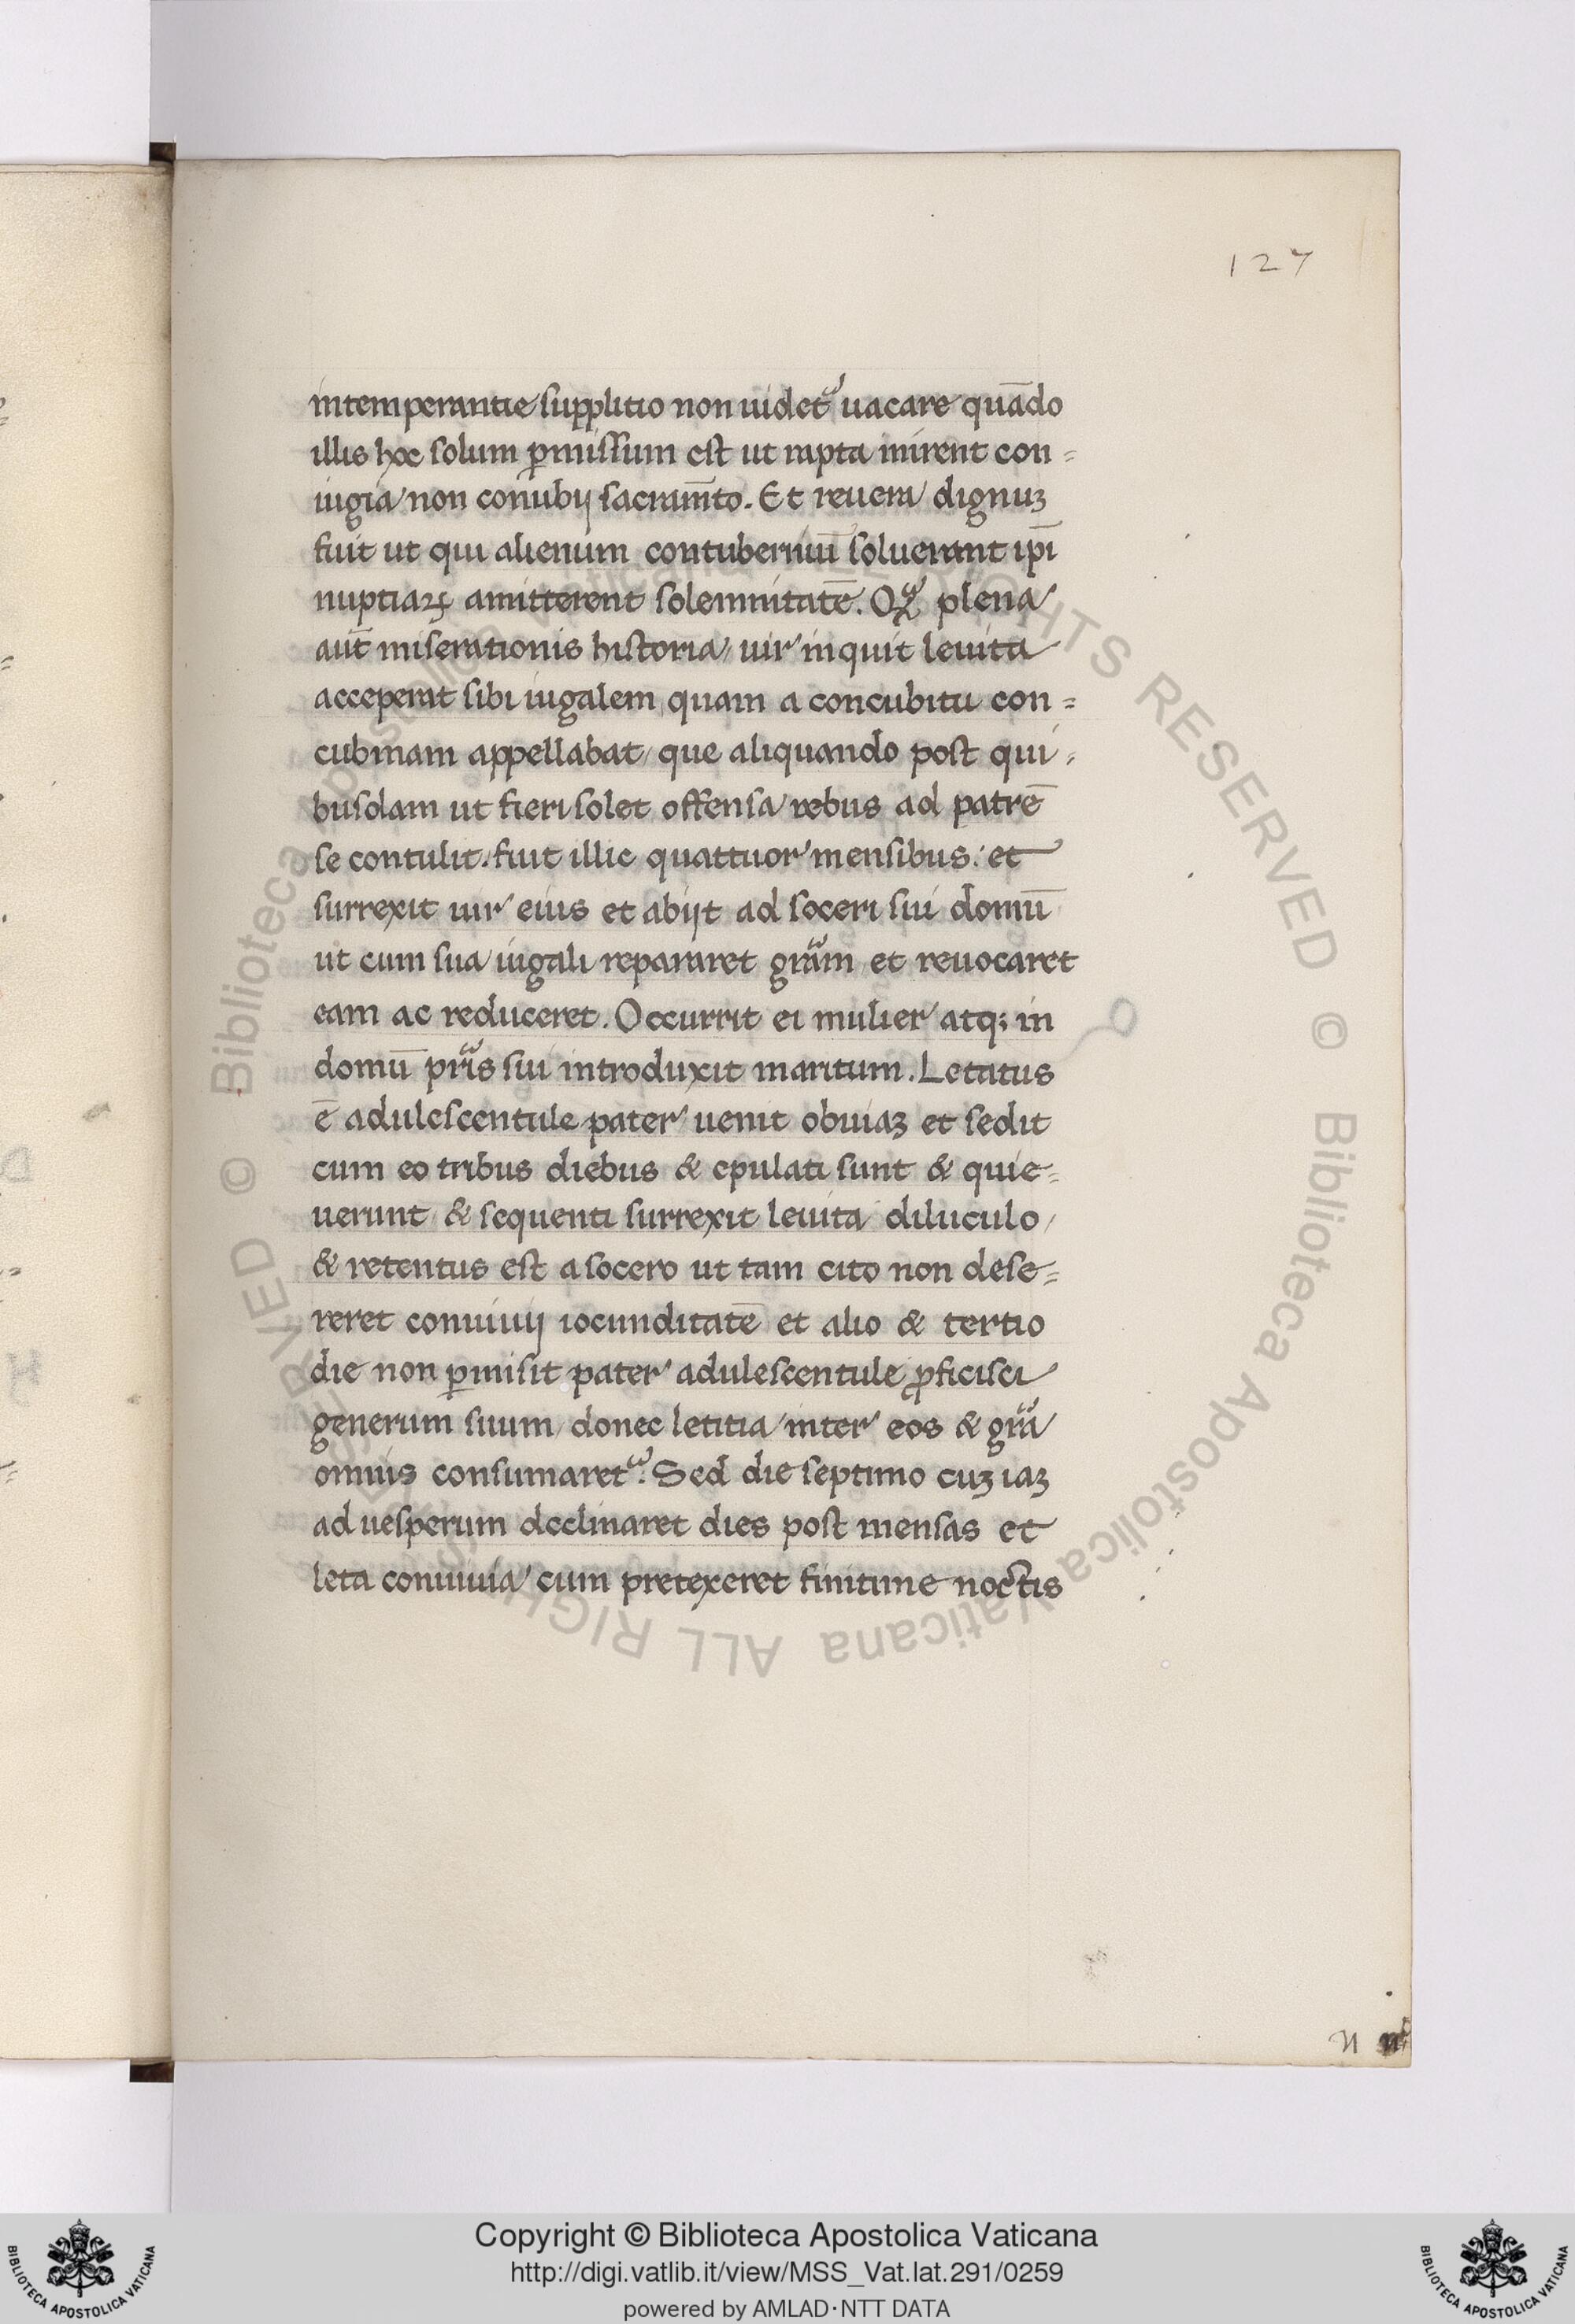 127
intemperantie supplitio non uidet᷑ uacare quādo
illis hoc solum ꝑmissum est ut rapta inirent con=
iugia non conubij sacram̄to. Et reuera dignuꝫ
fuit ut qui alienum contuberniū soluerant ip̄i
nuptiaꝝ amitterent solemnitatē. plena
aut̄ miserationis historia / uir inquit leuita
acceperat sibi iugalem quam a concubitu con=
cubinam appellabat / que aliquando post qui=
busdam ut fieri solet offensa rebus ad patrē
se contulit. fuit illic quattuor mensibus: et
surrexit uir eius et abijt ad soceri sui domū
ut cum sua iugali repararet gr̃am et reuocaret
eam ac reduceret. Occurrit ei mulier atq; in
domū pr̃is sui introduxit maritum. Letatus
ē adulescentule pater uenit obuiaꝫ et sedit
cum eo tribus diebus & epulati sunt & quie=
uerunt / & sequenti surrexit leuita diluculo /
& retentus est a socero ut tam cito non dese=
reret conuiuij iocunditatē et alio & tertio
die non ꝑmisit pater adulescentule ꝓficisci
generum suum / donec letitia inter eos & gr̃a
omnis consumaret᷑. Sed die septimo cuꝫ iaꝫ
ad uesperum declinaret dies post mensas et
leta conuiuia cum pretexeret finitime noctis
n
© Biblioteca Apostolica Vaticana ALL RIGHTS RESERVED © Biblioteca Apostolica Vaticana ALL RIGHTS RESERVED
BIBLIOTECA APOSTOLICA VATICANA
Copyright © Biblioteca Apostolica Vaticana
http://digi.vatlib.it/view/MSS_Vat.lat.291/0259
powered by AMLAD·NTT DATA
BIBLIOTECA APOSTOLICA VATICANA